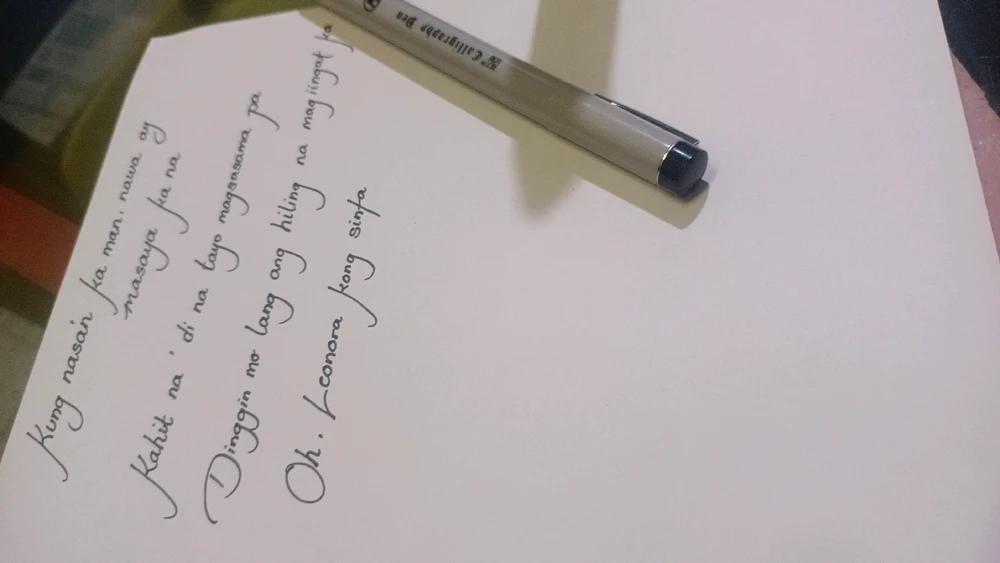 Kung nasan ka man, nawa ay
masaya ka na
Kahit na 'di na tayo magsasama pa
Dinggin mo lang ang hiling na magiingat ka
Oh, Leonora kong sinta
Calligraphy Pen